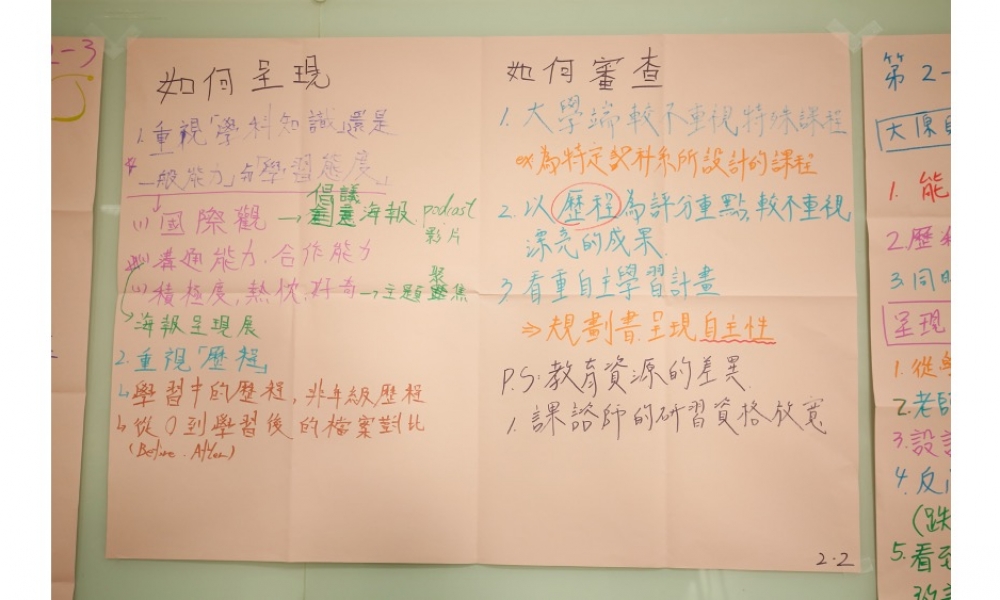 2-3
如何呈現
1.重視「學科知識」還是
一般能力」与「學習態度」
倡議
(1)國際觀 → 海報. podcast
影片
(2)溝通能力.合作能力
聚
(3)積極度,熱忱,好奇→主題 集
海報呈現展
2.重視「歷程」
↳學習中的歷程,非年級歷程
↳從0到學習後的檔案對比
(Before.After)
如何審查
1.大學端較不重視特殊課程
ex為特定 科系所設計的課程
2.以歷程為評分重點,較不重視
漂亮的成果.
3看重自主學習計畫
⇒規劃書呈現自主性
P.S.教育資源的差異.
1.課諮師的研習資格放寬
2.2
第2-
大原
1.能
2.歷
3.同時
呈現
1.從
2.老師
3.設
4.反
(跌
5.看